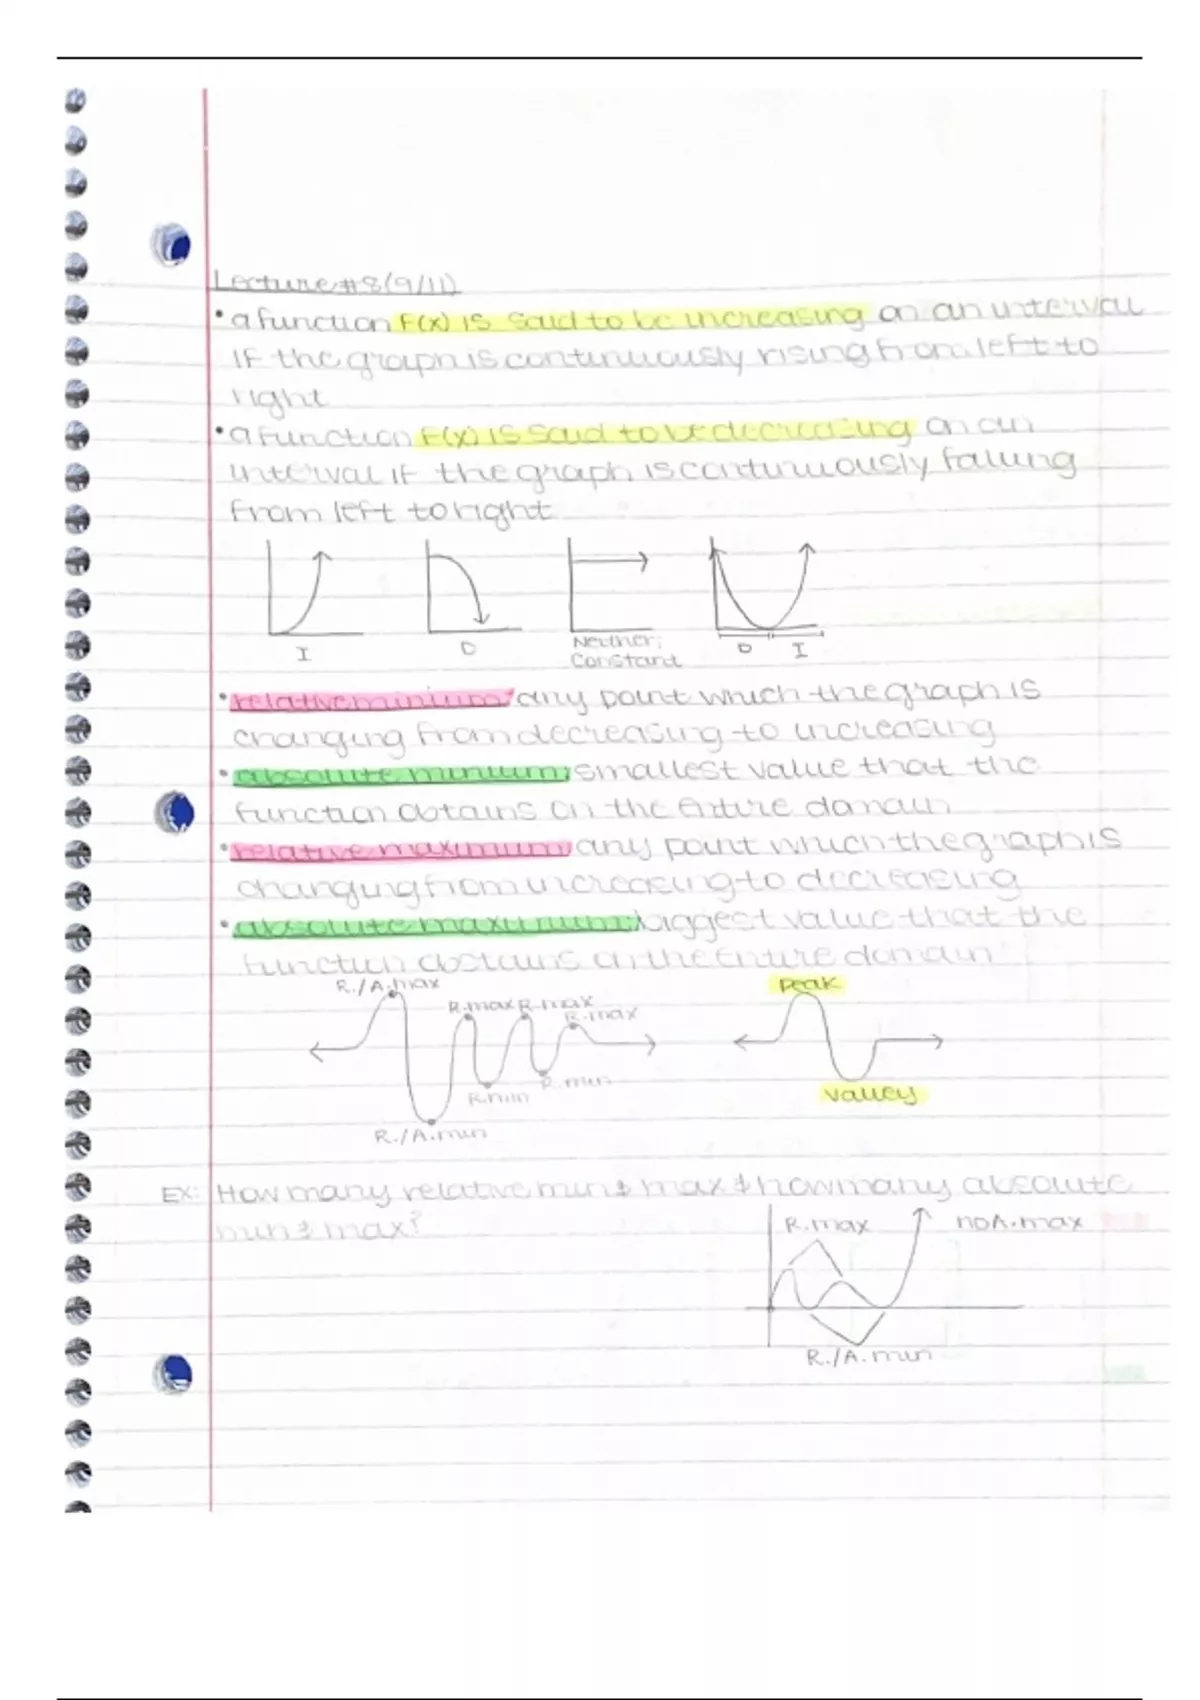 Lecture #8(9/11)
• a function f(x) is said to be increasing on an interval
if the graph is continuously rising from left to
right
• a function f(x) is said to be decreasing on an
interval if the graph is continuously falling
from left to right
I
D
Neither;
Constant
D I
• relative minium: any point which the graph is
changing from decreasing to increasing
• absolute minium: smallest value that the
function obtains on the entire domain
• relative maximum: any point which the graph is
changing from increasing to decreasing
• absolute maximum: biggest value that the
function obtains on the entire domain
R./A.max
R.max R.max
R.max
R.min
R.min
R./A.min
Peak
valley
EX: How many relative min & max & how many absolute
min & max?
R.max no A.max
R./A.min